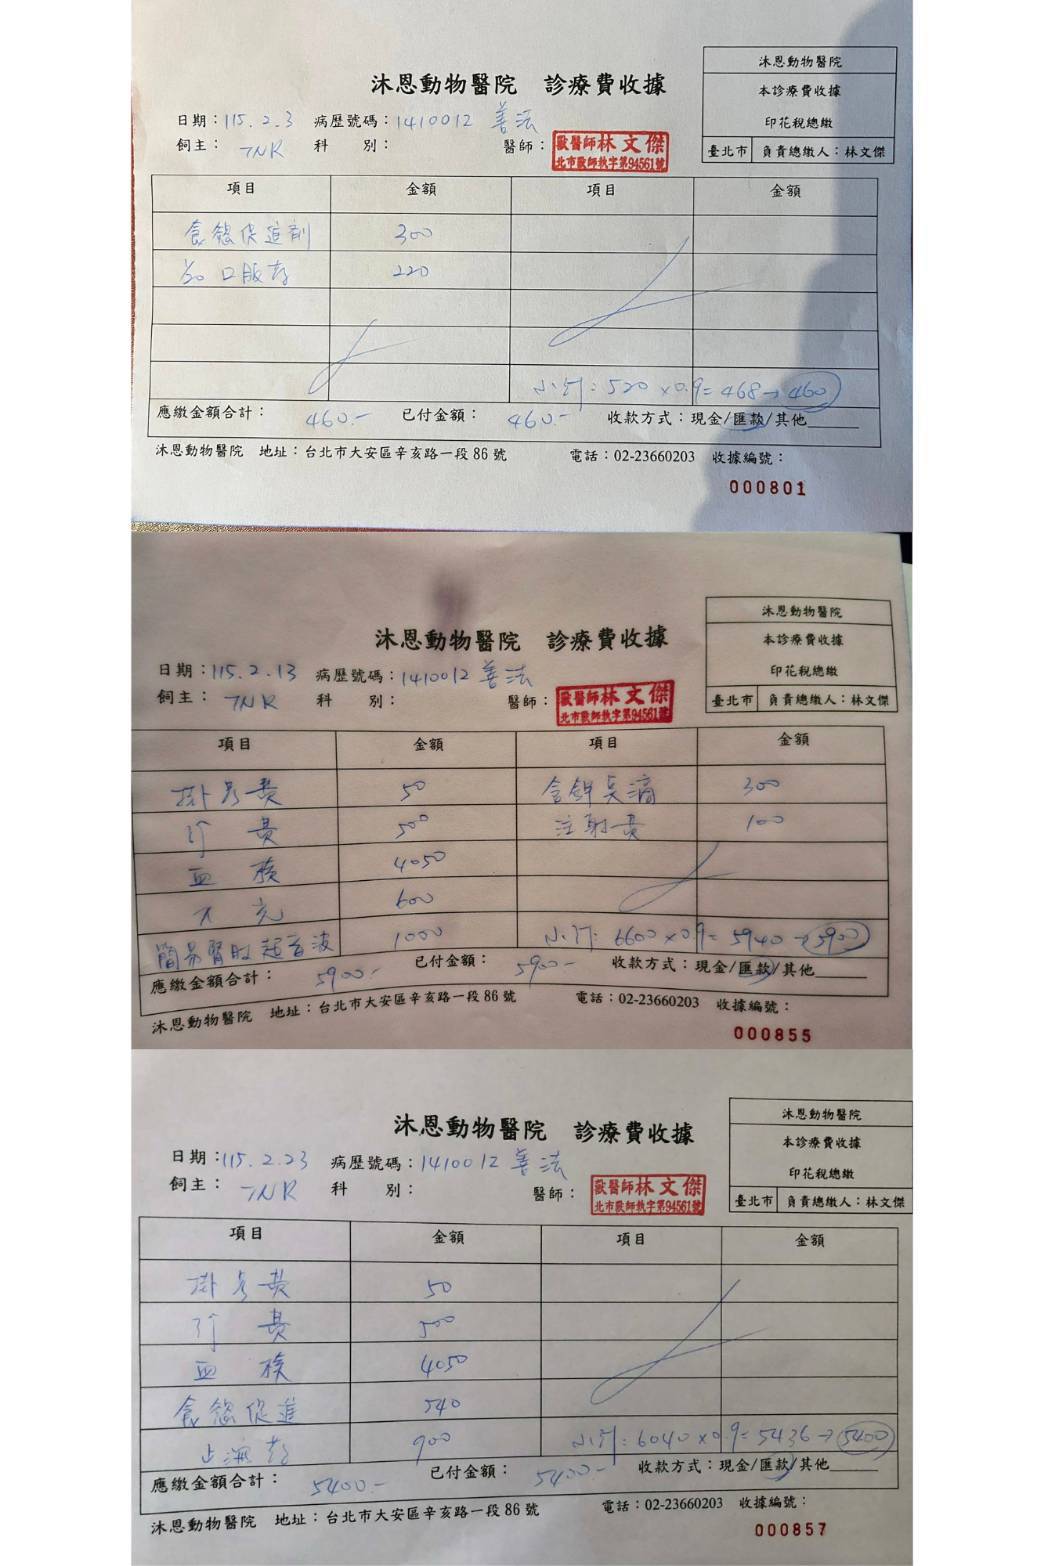 沐恩動物醫院 診療費收據
沐恩動物醫院
本診療費收據
印花稅總繳
臺北市 負責總繳人：林文傑
日期：115.2.3 病歷號碼：1410012 善法
飼主：TNR 科 別： 醫師：獸醫師林文傑
北市獸師執字第94561號
項目 金額 項目 金額
食慾促進劑 300
口服藥 220
小計：520×0.9=468→460
應繳金額合計：460.- 已付金額：460.- 收款方式：現金/匯款/其他______
沐恩動物醫院 地址：台北市大安區辛亥路一段86號 電話：02-23660203 收據編號：
000801
沐恩動物醫院 診療費收據
沐恩動物醫院
本診療費收據
印花稅總繳
臺北市 負責總繳人：林文傑
日期：115.2.13 病歷號碼：1410012 善法
飼主：TNR 科 別： 醫師：獸醫師林文傑
北市獸師執字第94561號
項目 金額 項目 金額
掛号費 50 300
診費 500 注射費 100
血檢 4050
X光 600
簡易腎臟超音波 1000 小計：6600×0.9=5940→5900
應繳金額合計：5900.- 已付金額：5900- 收款方式：現金/匯款/其他______
沐恩動物醫院 地址：台北市大安區辛亥路一段86號 電話：02-23660203 收據編號：
000855
沐恩動物醫院 診療費收據
沐恩動物醫院
本診療費收據
印花稅總繳
臺北市 負責總繳人：林文傑
日期：115.2.23 病歷號碼：1410012 善法
飼主：TNR 科 別： 醫師：獸醫師林文傑
北市獸師執字第94561號
項目 金額 項目 金額
掛号費 50
診費 500
血檢 4050
食慾促進 540
止瀉藥 900 小計：6040×0.9=5436→5400
應繳金額合計：5400- 已付金額：5400- 收款方式：現金/匯款/其他______
沐恩動物醫院 地址：台北市大安區辛亥路一段86號 電話：02-23660203 收據編號：
000857